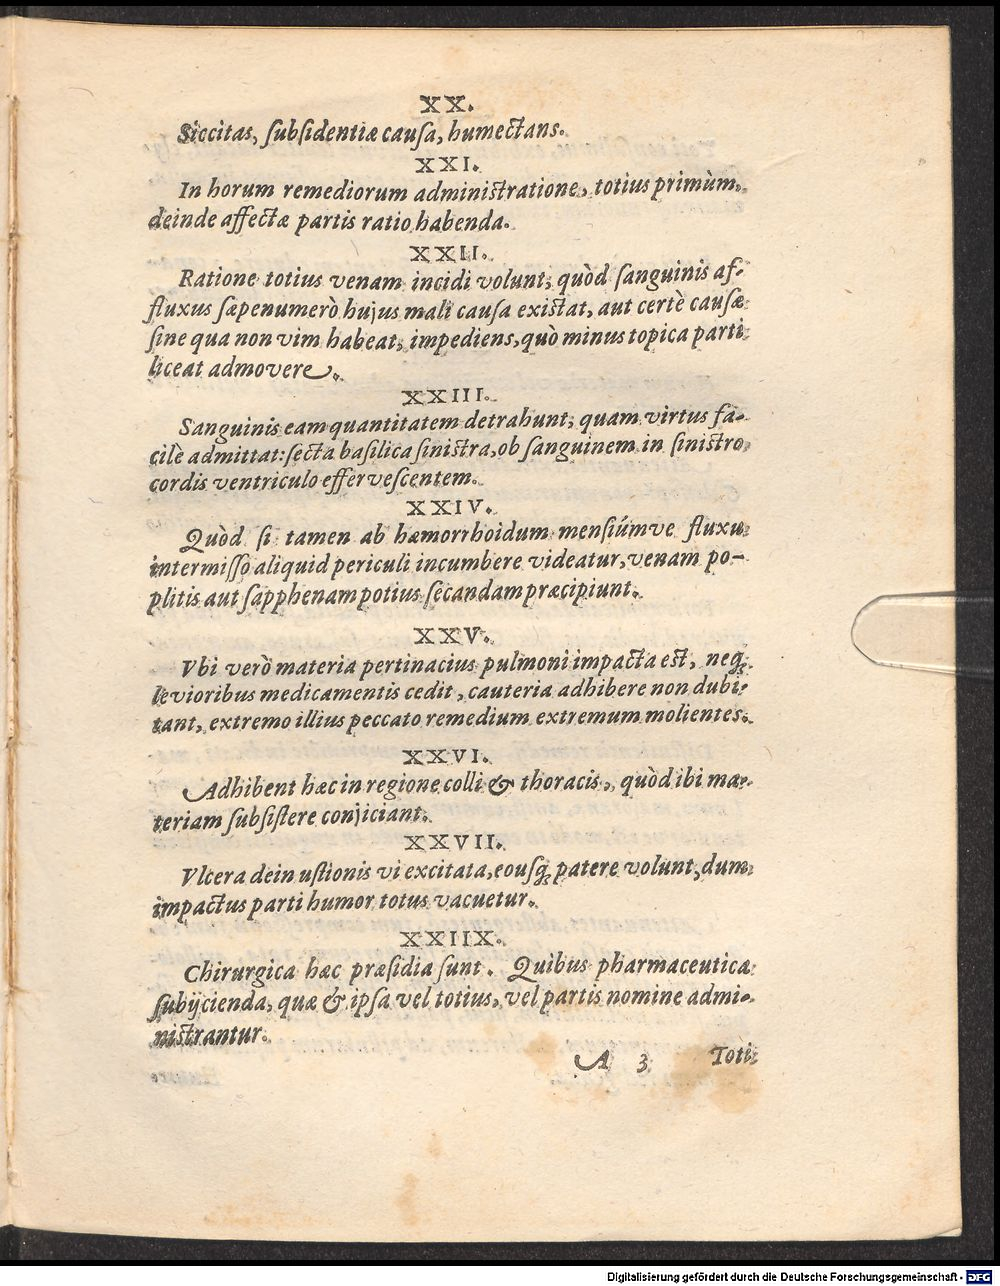 XX.
Siccitas, ſubſidentiæ cauſa, humectans.
XXI.
In horum remediorum adminiſtratione, totius primùm,
deinde affectæ partis ratio habenda.
XXII.
Ratione totius venam incidi volunt, quòd ſanguinis af-
fluxus ſæpenumerò hujus mali cauſa exiſtat, aut certè cauſæ
ſine qua non vim habeat, impediens, quò minus topica parti
liceat admovere.
XXIII.
Sanguinis eam quantitatem detrahunt, quam virtus fa-
cilè admittat: ſecta baſilica ſiniſtra, ob ſanguinem in ſiniſtro
cordis ventriculo efferveſcentem.
XXIV.
Quòd ſi tamen ab hæmorrhoidum menſiúmve fluxu
intermiſſo aliquid periculi incumbere videatur, venam po-
plitis aut ſapphenam potius ſecandam præcipiunt.
XXV.
Vbi verò materia pertinacius pulmoni impacta eſt, neq;
levioribus medicamentis cedit, cauteria adhibere non dubi-
tant, extremo illius peccato remedium extremum molientes.
XXVI.
Adhibent hæc in regione colli & thoracis, quòd ibi ma-
teriam ſubſiſtere conjiciant.
XXVII.
Vlcera dein uſtionis vi excitata, eouſq; patere volunt, dum
impactus parti humor totus vacuetur.
XXIIX.
Chirurgica hæc præſidia ſunt. Quibus pharmaceutica
ſubijcienda, quæ & ipſa vel totius, vel partis nomine admi-
niſtrantur.
A 3 Toti
Digitalisierung gefördert durch die Deutsche Forschungsgemeinschaft - DFG